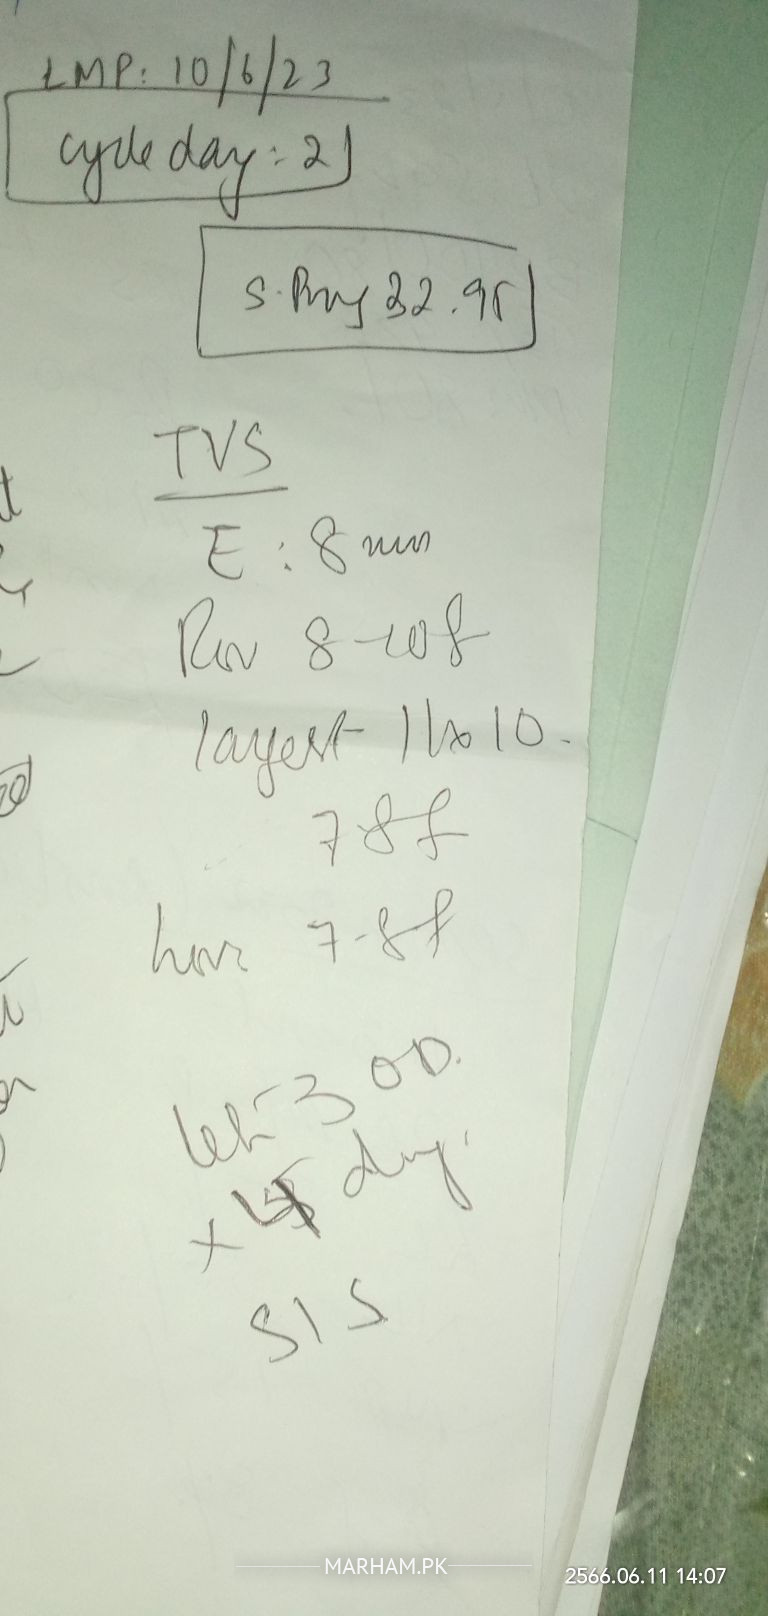 LMP: 10/6/23
cycle day: 2
S. Prog 32.95
TVS
E: 8 mm
Rov 8-10 f
largest 11x10.
7 8 f
Lov: 7-8 f
3 OD.
x day.
SIS
MARHAM.PK
2566.06.11 14:07